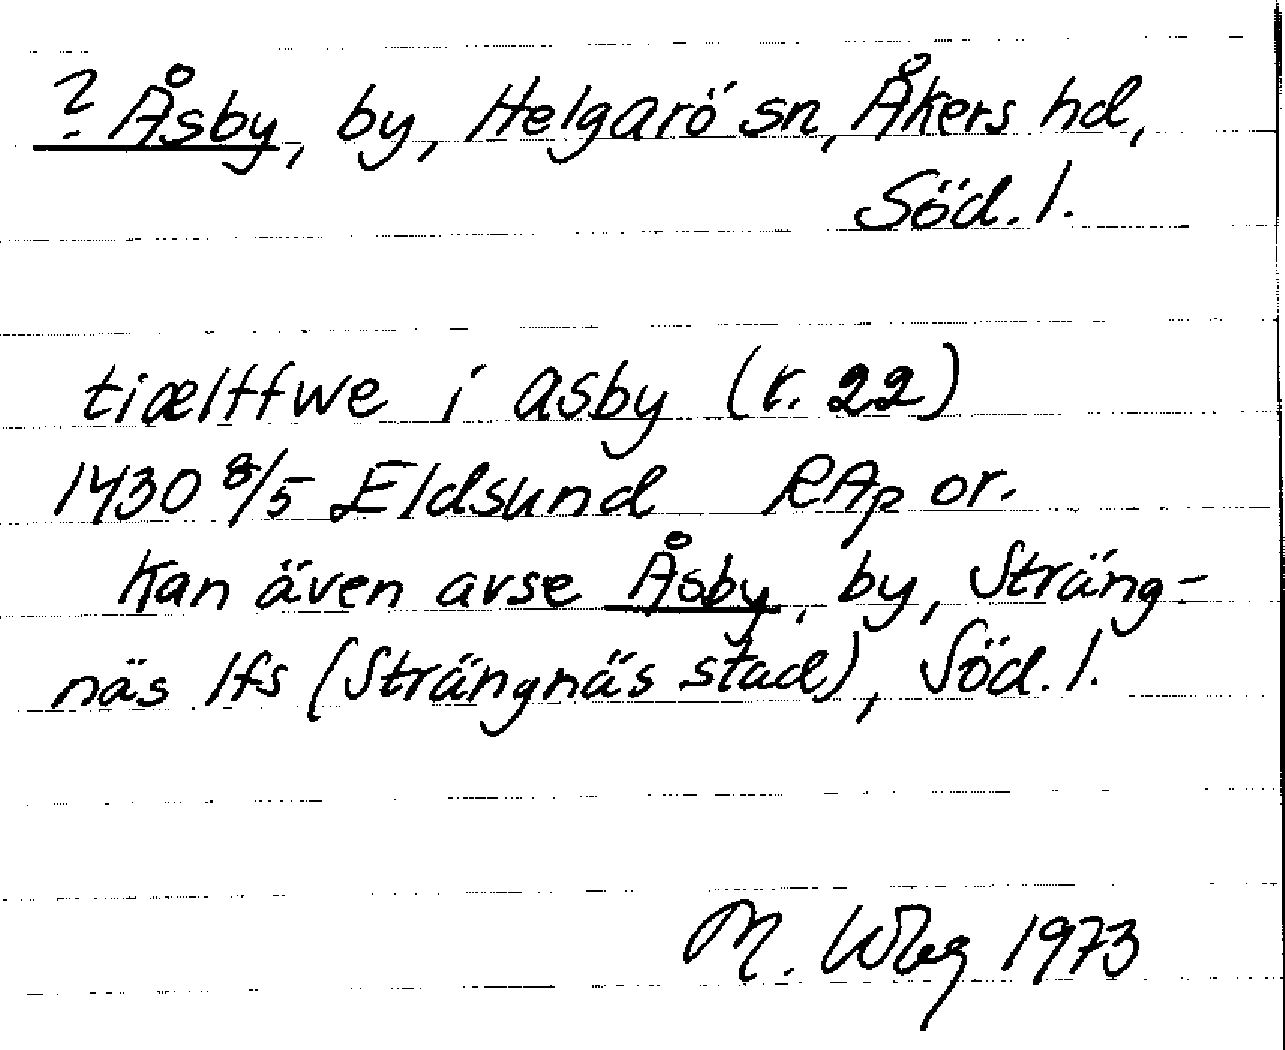 ? Åsby, by, Helgarö sn, Åkers hd,
Söd. l.
tiælffwe i asby (r. 22)
1430 8/5 Eldsund RAp or.
Kan även avse Åsby, by, Sträng-
näs lfs (Strängnäs stad), Söd. l.
M. Wbg 1973